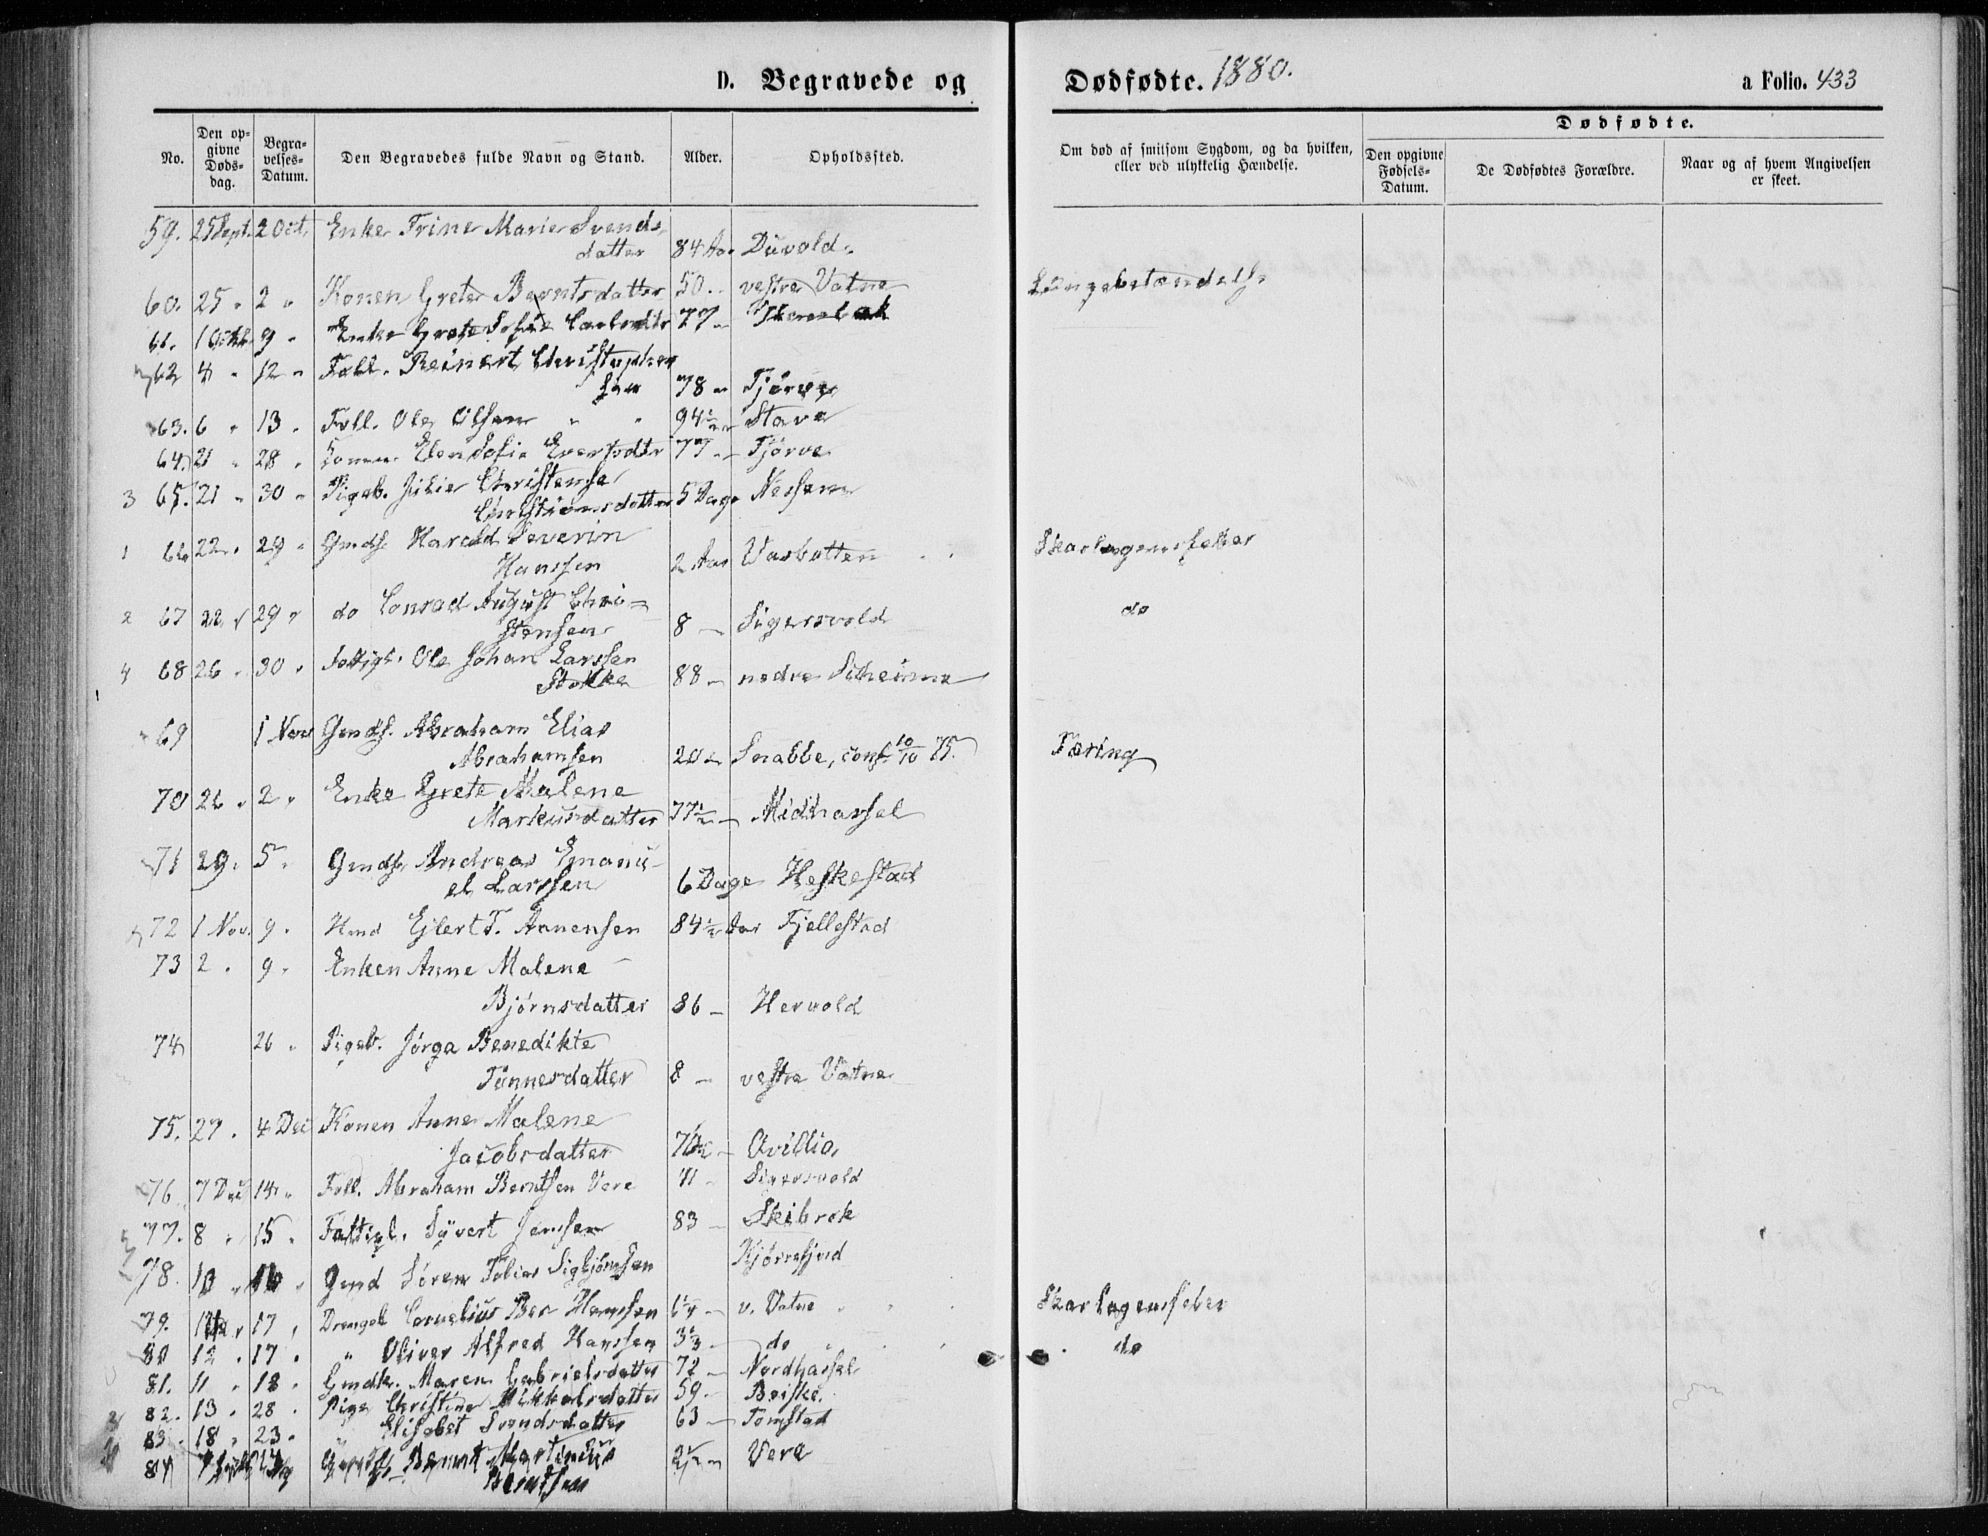 D. Begravede og Dødfødte. 1880. a Folio. 433
No. Den opgivne Dødsdag. Begravelses-Datum. Den Begravedes fulde Navn og Stand. Alder. Opholdssted. Om død af smitsom Sygdom, og da hvilken, eller ved ulykkelig Hændelse. Dødfødte. Den opgivne Fødsels-Datum. De Dødfødtes Forældre. Naar og af hvem Angivelsen er skeet.
59. 25 Sept. 2 Oct. Enke Trine Marie Svends-
datter 84 Aar Duvold.
60. 25 " 2 " Konen Grete Berntsdatter 50 " vestre Vatne Lungebetændelse
61. 1 Octb. 9 " Enke Grete Sofie 77 "
62 4 " 12 " Foll. Reinert Christopher
sen 78 " Tjørve
63. 6 " 13 " Foll. Ole Olsen " " 94½ " Stave
64. 21 " 28 " Konen Elen Sofie Evertsdtr 77 " Tjørve
3 65. 21 " 30 " Pigeb. Julie Christense
Christiansdatter 5 Dage Nessem
1 66 22 " 29 " Gmds. Harald Severin
Hanssen 2 Aar Vasbotten Skarlagensfeber
2 67 22 " 29 " do Conrad August Chri-
stensen 8 — Sigersvold do
4 68 26 " 30 " Fattigl. Ole Johan Larssen
Stokke 88 — nedre Skeime
69 1 Nov Gmds. Abraham Elias
Abrahamsen 20 " Snabbe, conf. 10/10 75. Tæring
70 26 " 2 " Enke Grete Malene
Markusdatter 77½ — Midhassel
71 29. 5 " Gmds. Andreas Emanu-
el Larssen 6 Dage Heskestad
72 1 Nov. 9 " Hmd Ejlert T. Aanensen 84½ Aar Fjellestad
73 2 " 9 " Enken Anne Malene
Bjørnsdatter 86 — Hervold
74 26 " Pigeb. Jørga Benedikte
Tønnesdatter 8 — vestre Vatne
75. 27 " 4 Dec Konen Anne Malene
Jacobsdatter
76 7 Dec 14 " Foll. Abraham Berntsen Vere Sigersvold
77. 8 " 15 " Fattigl. Syvert Jensen 83 — Skibrok
78. 10 " Gmd Søren Tobias Sigbjørnsen Kjørrefjord
79. 17 " Drengeb. Cornelius Ber Hanssen v. Vatne Skarlagensfeber
80 12 " 17 " " Oliver Alfred Hanssen 3⅓ " do do
81. 11 " 18 " Gmdk. Maren Gabrielsdatter 72 — Nordhassel
82. 13 " 28 " Pige Christine Mikkelsdatter 59 — Briske.
83. 18 " 23 " " Elisabet Svendsdatter 63 — Tomstad
84 Bernt Martinius
Berntsen 2½ " Vere